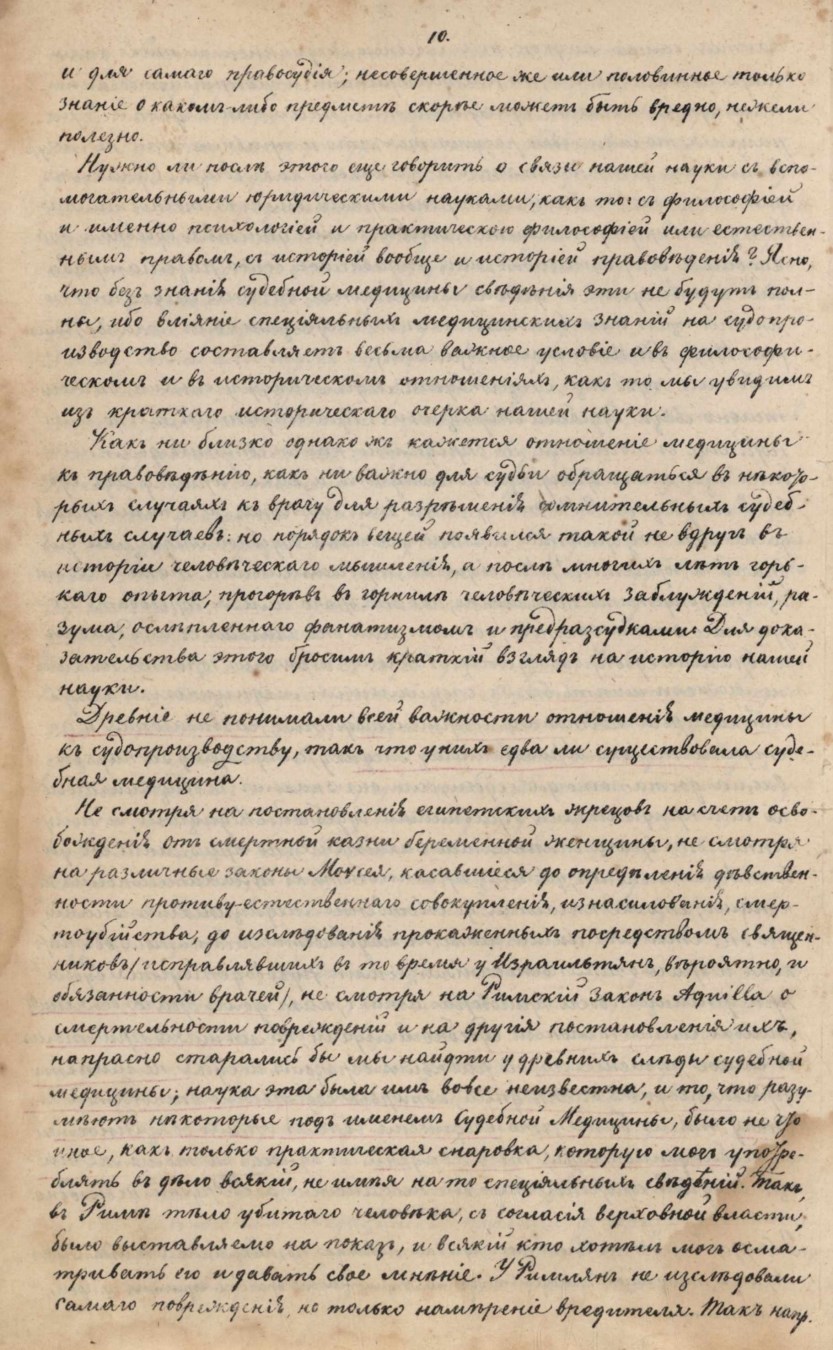 10.
и для самаго правосудія; несовершенное же или половинное только
знаніе о какомъ-либо предметѣ скорѣе можетъ быть вредно, нежели
полезно.
Нужно ли послѣ этого еще говорить о связи нашей науки съ вспо-
могательными юридическими науками, какъ то: съ философіей
и именно психологіей и практическою философіей или естествен-
нымъ правомъ, съ исторіей вообще и исторіей правовѣденія? Ясно,
что безъ знанія судебной медицины свѣдѣнія эти не будутъ пол-
ны, ибо вліяніе спеціяльныхъ медицинскихъ знаній на судопро-
изводство составляетъ весьма важное условіе и въ философи-
ческомъ и въ историческомъ отношеніяхъ, какъ то мы увидимъ
изъ краткаго историческаго очерка нашей науки.
Какъ ни близко однако жъ кажется отношеніе медицины
къ правовѣдѣнію, какъ ни важно для судьи обращаться въ нѣкото-
рыхъ случаяхъ къ врачу для разрѣшенія сомнительныхъ судеб-
ныхъ случаевъ: но порядокъ вещей появился такой не вдругъ въ
исторіи человѣческаго мышленія, а послѣ многихъ лѣтъ горь-
каго опыта, прогорѣвъ въ горнилѣ человѣческихъ заблужденій, ра-
зума, ослѣпленнаго фанатизмомъ и предразсудками. Для дока-
зательства этого бросимъ краткій взглядъ на исторію нашей
науки.
Древніе не понимали всей важности отношенія медицины
къ судопроизводству, такъ что у нихъ едва ли существовала суде-
бная медицина.
Не смотря на постановленія египетскихъ жрецовъ на счетъ осво-
божденія отъ смертной казни беременной женщины, не смотря
на различные законы Моѵсея, касавшіеся до опредѣленія дѣвствен-
ности противу-естественнаго совокупленія, изнасилованія, смер-
тоубійства, до изслѣдованія прокаженныхъ посредствомъ священ-
никовъ /исправлявшихъ въ то время у Израильтянъ, вѣроятно, и
обязанности врачей/, не смотря на Римскій Законъ Aquilla о
смертельности поврежденій и на другія постановленія ихъ,
напрасно старались бы мы найдти у древнихъ слѣды судебной
медицины; наука эта была имъ вовсе неизвестна, и то, что разу-
мѣютъ нѣкоторые подъ именемъ Судебной Медицины, было не что
иное, какъ только практическая снаровка, которую могъ употре-
блять въ дѣло всякій, не имѣя на то спеціяльныхъ свѣдѣній. Такъ,
въ Римѣ тѣло убитаго человѣка, съ согласія верховной власти,
было выставляемо на показъ, и всякій кто хотѣлъ могъ осма-
тривать его и давать свое мнѣніе. У Римлянъ не изслѣдовали
самаго поврежденія, но только намѣреніе вредителя. Такъ напр.